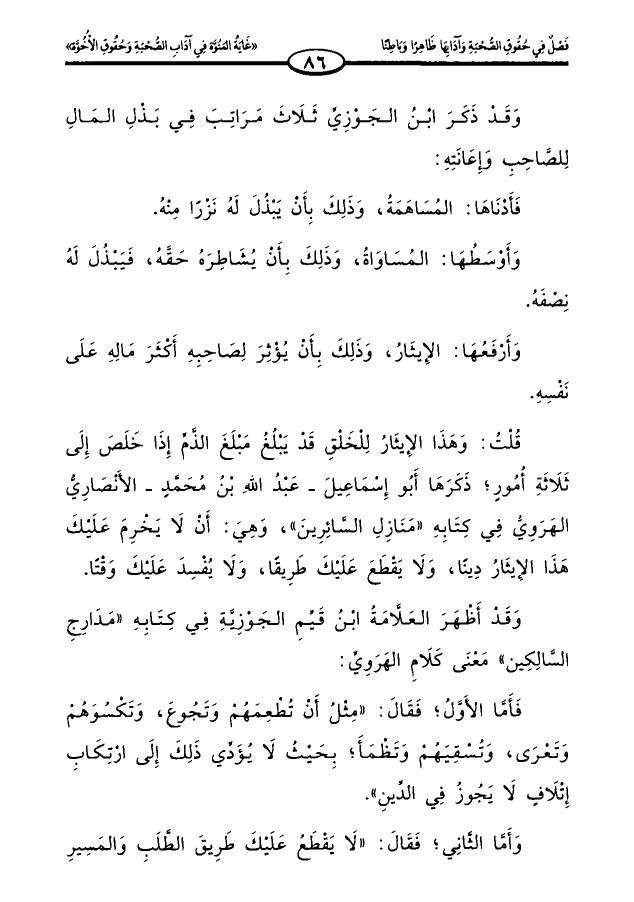 فَصْلٌ فِي حُقُوقِ الصُّحْبَةِ وَآدَابِهَا ظَاهِرًا وَبَاطِنًا
٨٦
«غَايَةُ المُنُوَّة فِي آدَابِ الصُّحْبَةِ وَحُقُوقِ الأُخُوَّة»
وَقَدْ ذَكَرَ ابْنُ الجَوْزِيِّ ثَلَاثَ مَرَاتِبَ فِي بَذْلِ المَالِ
لِلصَّاحِبِ وَإِعَانَتِهِ:
فَأَدْنَاهَا: المُسَاهَمَةُ، وَذَلِكَ بِأَنْ يَبْذُلَ لَهُ نَزْرًا مِنْهُ.
وَأَوْسَطُهَا: المُسَاوَاةُ، وَذَلِكَ بِأَنْ يُشَاطِرَهُ حَقَّهُ، فَيَبْذُلَ لَهُ
نِصْفَهُ.
وَأَرْفَعُهَا: الإِيثَارُ، وَذَلِكَ بِأَنْ يُؤْثِرَ لِصَاحِبِهِ أَكْثَرَ مَالِهِ عَلَى
نَفْسِهِ.
قُلْتُ: وَهَذَا الإِيثَارُ لِلْخَلْقِ قَدْ يَبْلُغُ مَبْلَغَ الذَّمِّ إِذَا خَلَصَ إِلَى
ثَلَاثَةِ أُمُورٍ؛ ذَكَرَهَا أَبُو إِسْمَاعِيلَ ـ عَبْدُ اللهِ بْنُ مُحَمَّدٍ ـ الأَنْصَارِيُّ
الهَرَوِيُّ فِي كِتَابِهِ «مَنَازِلِ السَّائِرِينَ»، وَهِيَ: أَنْ لَا يَخْرِمَ عَلَيْكَ
هَذَا الإِيثَارُ دِينًا، وَلَا يَقْطَعَ عَلَيْكَ طَرِيقًا، وَلَا يُفْسِدَ عَلَيْكَ وَقْتًا.
وَقَدْ أَظْهَرَ العَلَّامَةُ ابْنُ قَيِّمِ الجَوْزِيَّةِ فِي كِتَابِهِ «مَدَارِجِ
السَّالِكِين» مَعْنَى كَلَامِ الهَرَوِيِّ:
فَأَمَّا الأَوَّلُ؛ فَقَالَ: «مِثْلُ أَنْ تُطْعِمَهُمْ وَتَجُوعَ، وَتَكْسُوَهُمْ
وَتَعْرَى، وَتُسْقِيَهُمْ وَتَظْمَأَ؛ بِحَيْثُ لَا يُؤَدِّي ذَلِكَ إِلَى ارْتِكَابِ
إِتْلَافٍ لَا يَجُوزُ فِي الدِّينِ».
وَأَمَّا الثَّانِي؛ فَقَالَ: «لَا يَقْطَعُ عَلَيْكَ طَرِيقَ الطَّلَبِ وَالمَسِيرِ